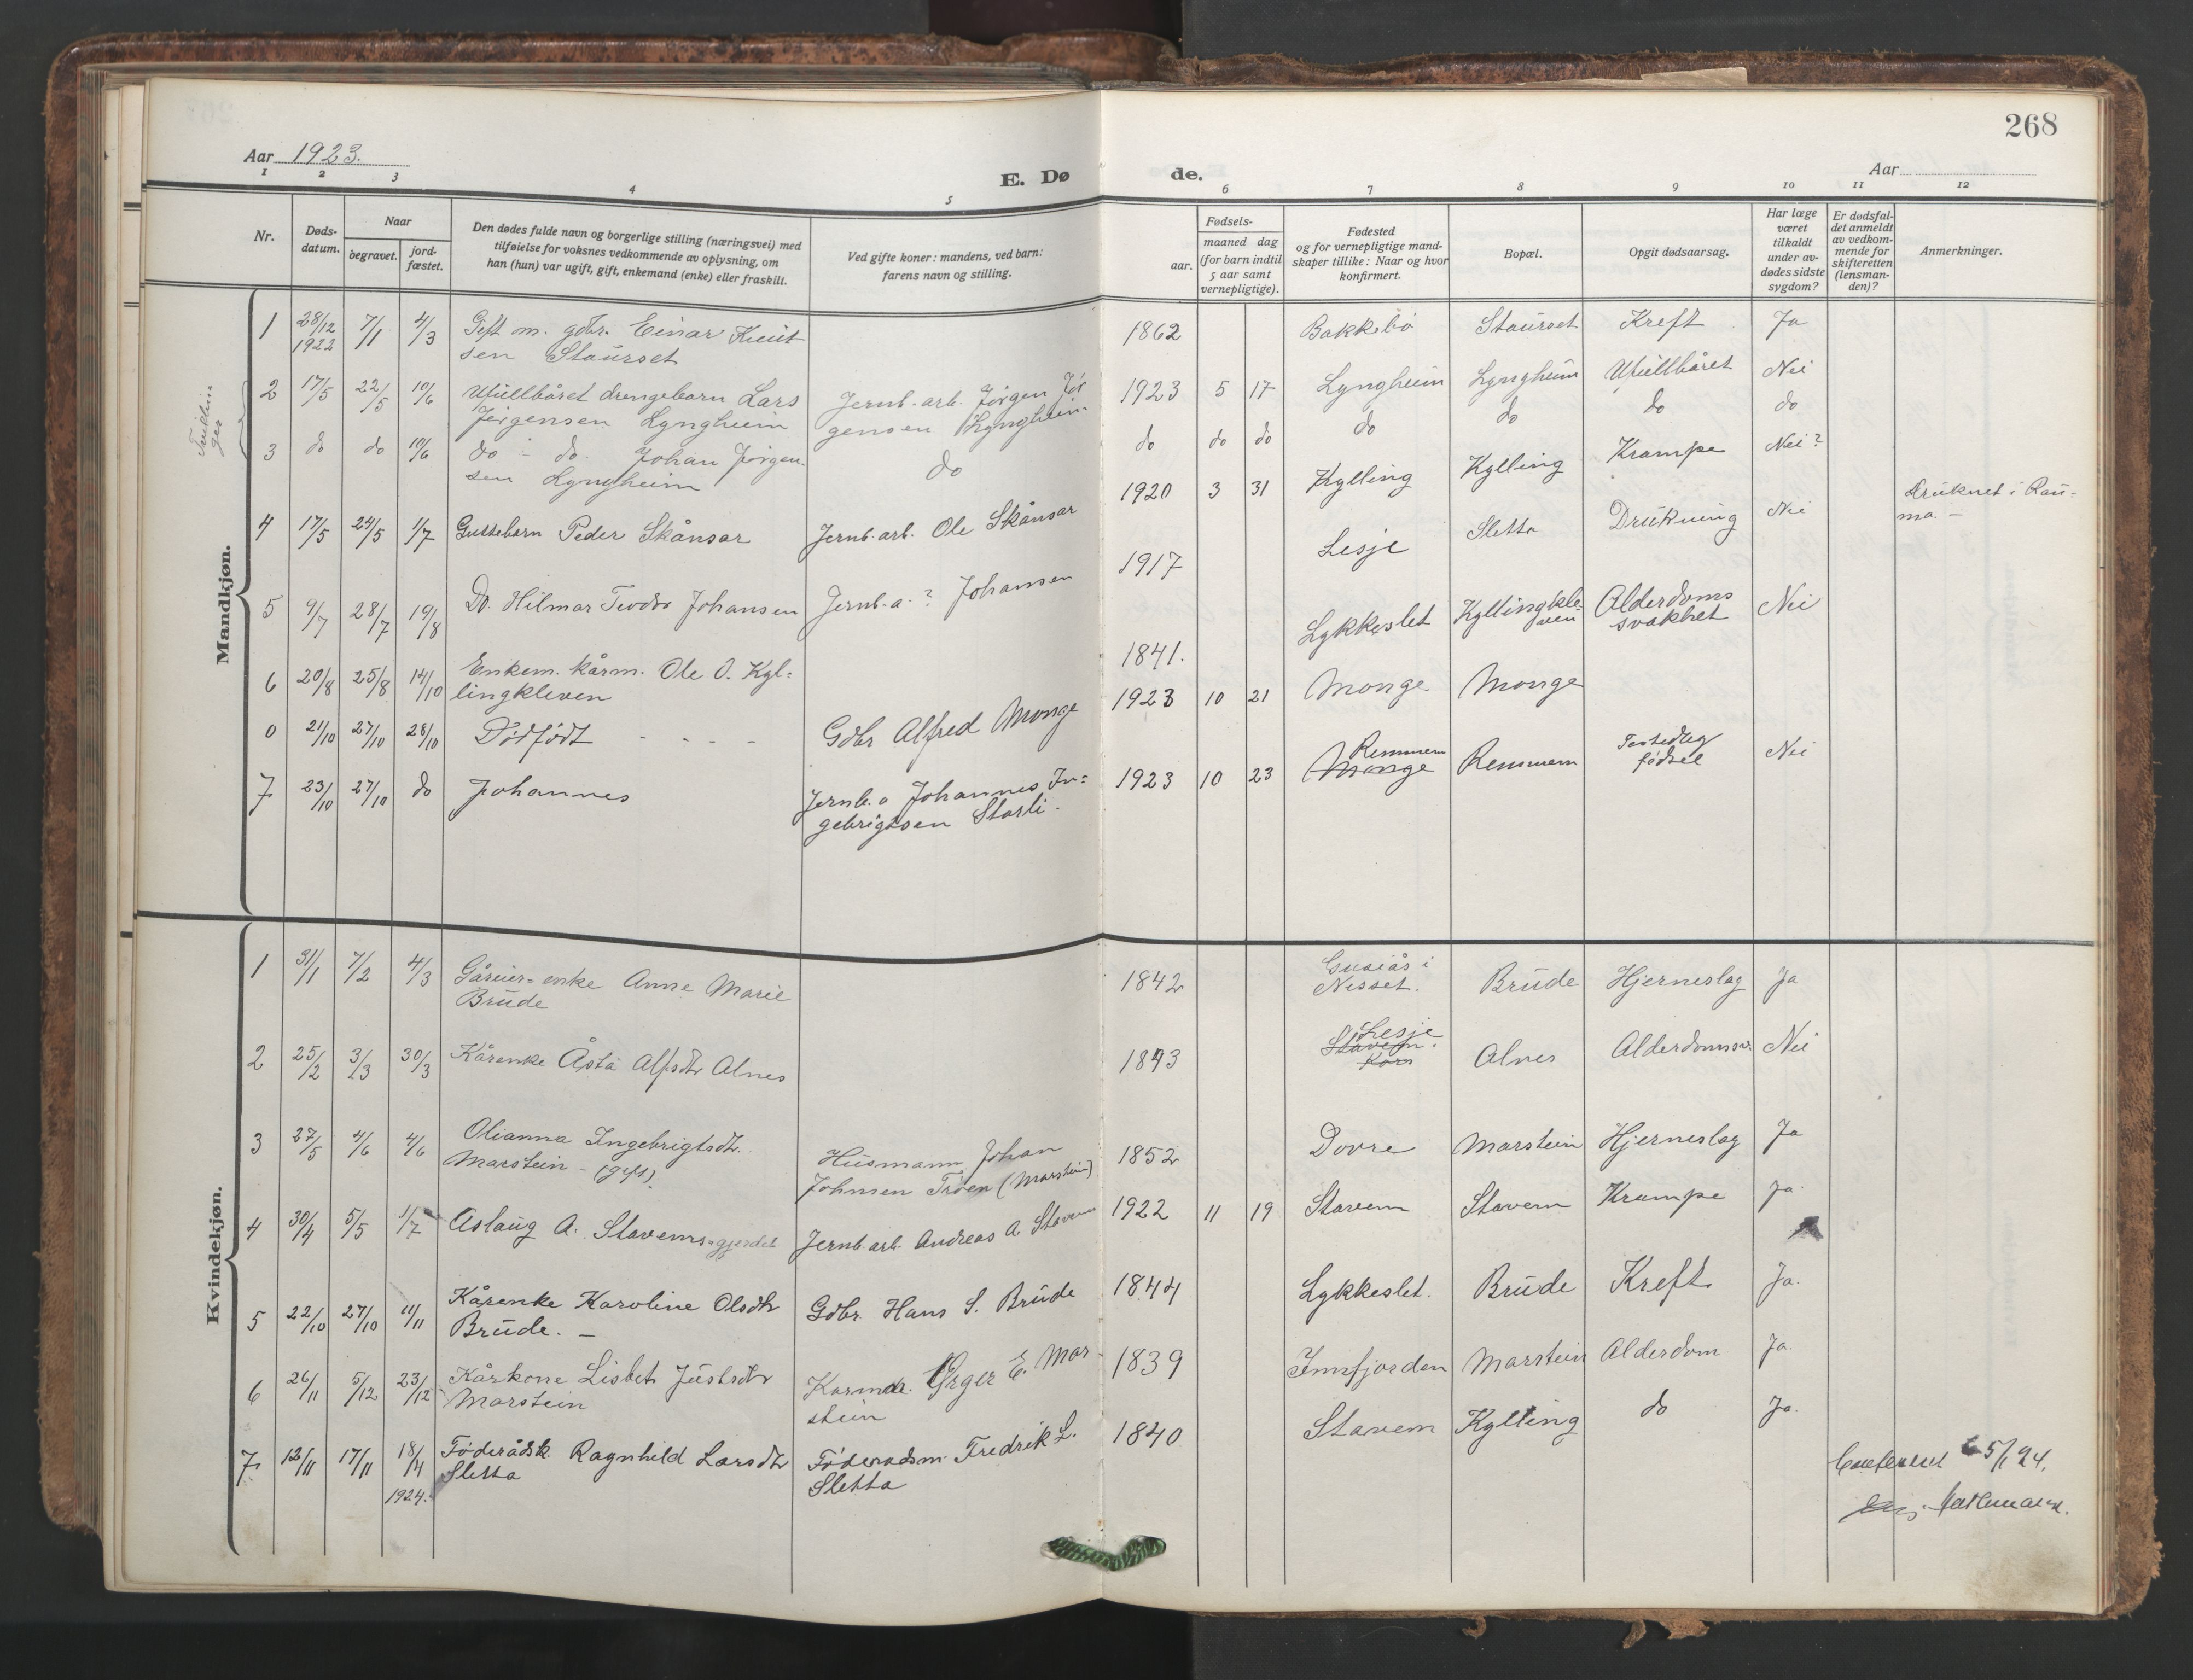 268
Aar 1923.
Aar
E. Dø
de.
1 2 3 4 5 6 7 8 9 10 11 12
Nr.
Døds-
datum.
Naar
begravet.
jord-
fæstet.
Den dødes fulde navn og borgerlige stilling (næringsvei) med
tilføielse for voksnes vedkommende av oplysning, om
han (hun) var ugift, gift, enkemand (enke) eller fraskilt.
Ved gifte koner: mandens, ved barn:
farens navn og stilling.
Fødsels-
aar.
maaned dag
(for barn indtil
5 aar samt
vernepligtige).
Fødested
og for vernepligtige mand-
skaper tillike: Naar og hvor
konfirmert.
Bopæl.
Opgit dødsaarsag.
Har læge
været
tilkaldt
under av-
dødes sidste
sygdom?
Er dødsfal-
det anmeldt
av vedkom-
mende for
skifteretten
(lensman-
den)?
Anmerkninger.
Mandkjøn.
1 28/12 7/1 4/3 Gift m. gdbr. Einar Knut 1862 Bakkebø Stauset Kreft Ja
1922 sen Stauset
2 17/5 22/5 10/6 Ufullbåret drengebarn Lars Jernb. arb. Jørgen Jør 1923 5 17 Lyngheim Lyngheim Ufullbåret Nei
Jørgensen Lyngheim gensen Lyngheim
3 do do 10/6 do - do Johan Jørgen- do do do do do do do do
sen Lyngheim
4 17/5 24/5 1/7 Guttebarn Peder Skånsar Jernb. arb. Ole Skånsar 1920 3 31 Kylling Kylling Krampe Nei?
5 9/7 28/7 19/8 Do. Hilmar Teodor Johansen Jernb. a. ? Johansen 1917 Lesje Sletta Drukning Nei Druknet i Rau=
ma. -
6 20/8 25/8 14/10 Enkem. kårm. Ole O. Kyl= 1841. Lykkeslet Kyllingkle- Alderdoms Nei
lingkleven ven svakhet
0 21/10 27/10 28/10 Dødfødt - - - - Gdbr Alfred Monge 1923 10 21 Monge Monge
7 23/10 27/10 do Johannes Jernb. a Johannes In= 1923 10 23 Monge Remmem Remmem fødsel Nei
gebrigtsen Storli -
Kvindekjøn.
1 31/1 7/2 4/3 enke Anne Marie 1842 i Brude Hjerneslag Ja
Brude Nesset.
2 25/2 3/3 30/3 Kårenke Åsta Alfsdtr Alnes 1843 Stavem. Kors Lesje Alnes Alderdomssv. Nei
3 27/5 4/6 4/6 Olianna Ingebrigtsdtr. Husmann Johan 1852 Dovre Marstein Hjerneslag Ja
Marstein - (gift). Johnsen Trøen (Marstein)
4 30/4 5/5 1/7 Aslaug A. Stavems=gjerdet Jernb. arb. Andreas A Stavem 1922 11 19 Stavem Stavem Krampe Ja.
5 22/10 27/10 11/11 Kårenke Karoline Olsdtr Gdbr. Hans S. Brude 1844 Lykkeslet. Brude Kreft. Ja.
Brude. -
6 26/11 5/12 23/12 Kårkone Lisbet Justsdtr Ørger E. Mar- 1839 Innfjorden Marstein Alderdom Ja.
Marstein stein
7 12/11 17/11 18/4 Føderådsk. Ragnhild Larsdtr Føderadsm. Fredrik L. 1840 Stavem Kylling do Ja.
1924. Sletta Sletta